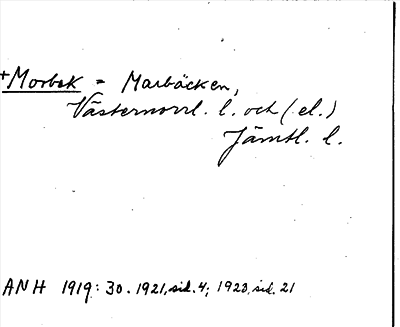 +Morbek = Marbäcken,
Västernorrl. l. och (el.)
Jämtl. l.
ANH 1919: 30. 1921, sid. 4; 1923, sid. 21